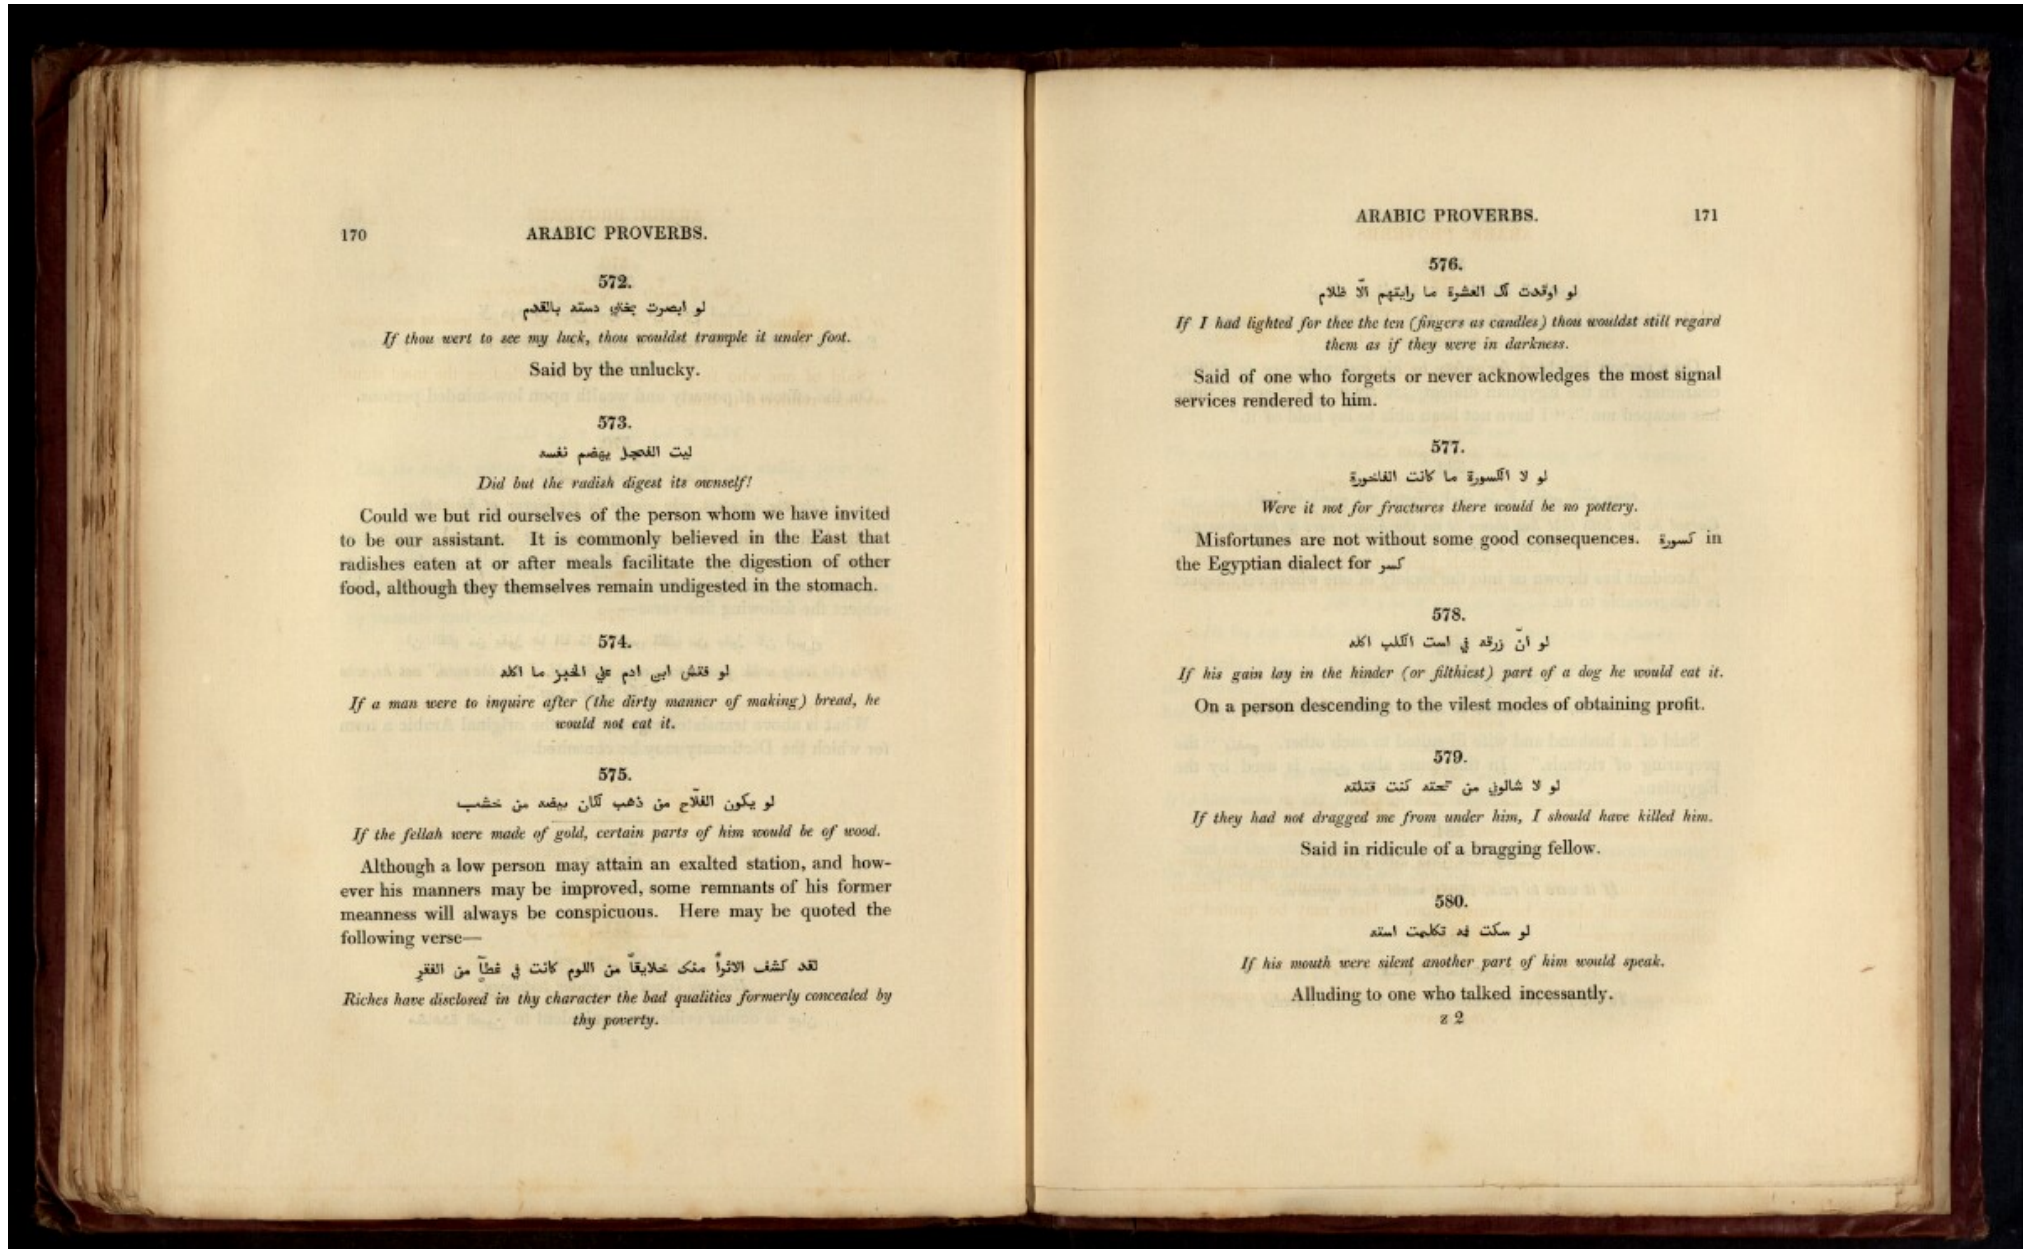 170
ARABIC PROVERBS.
572.
لو ابصرت بختي دسته بالقدم
If thou wert to see my luck, thou wouldst trample it under foot.
Said by the unlucky.
573.
ليت الفجل يهضم نفسه
Did but the radish digest its ownself!
Could we but rid ourselves of the person whom we have invited
to be our assistant. It is commonly believed in the East that
radishes eaten at or after meals facilitate the digestion of other
food, although they themselves remain undigested in the stomach.
574.
لو فتش ابن ادم علي الخبز ما اكله
If a man were to inquire after (the dirty manner of making) bread, he
would not eat it.
575.
لو يكون الفلّاح من ذهب لكان بيضه من خشب
If the fellah were made of gold, certain parts of him would be of wood.
Although a low person may attain an exalted station, and how-
ever his manners may be improved, some remnants of his former
meanness will always be conspicuous. Here may be quoted the
following verse—
لقد كشف الاثرأ منك خلايقاً من اللوم كانت في غطآٍ من الفقرِ
Riches have disclosed in thy character the bad qualities formerly concealed by
thy poverty.
ARABIC PROVERBS.
171
576.
لو اوقدت لك العشرة ما رايتهم الّا ظلام
If I had lighted for thee the ten (fingers as candles) thou wouldst still regard
them as if they were in darkness.
Said of one who forgets or never acknowledges the most signal
services rendered to him.
577.
لو لا الكسورة ما كانت الفاخورة
Were it not for fractures there would be no pottery.
Misfortunes are not without some good consequences. كسورة in
the Egyptian dialect for كسر
578.
لو انّ زرقه في است الكلب اكله
If his gain lay in the hinder (or filthiest) part of a dog he would eat it.
On a person descending to the vilest modes of obtaining profit.
579.
لو لا شالوني من تحته كنت قتلته
If they had not dragged me from under him, I should have killed him.
Said in ridicule of a bragging fellow.
580.
لو سكت فه تكلمت استه
If his mouth were silent another part of him would speak.
Alluding to one who talked incessantly.
z 2